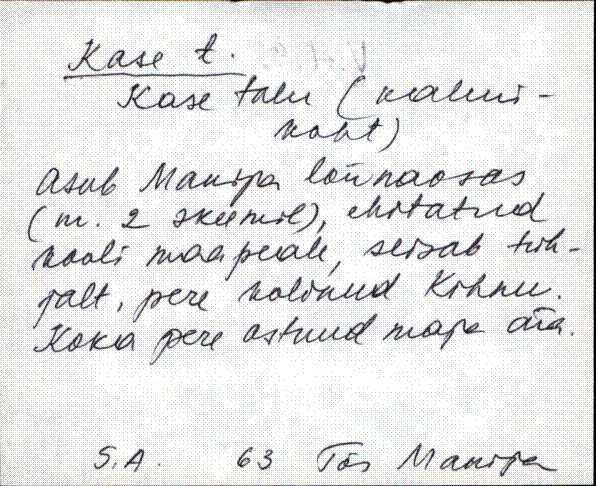 Kase t.
Kase talu (kalmi-
koht)
Asub Manija lõunaosas
(nr. 2 skeemil), ehitatud
kooli maapeale, seisab tüh-
jalt, pere kolinud Kihnu.
Koka pere ostnud maja ära.
S.A. 63 Tõs Manija